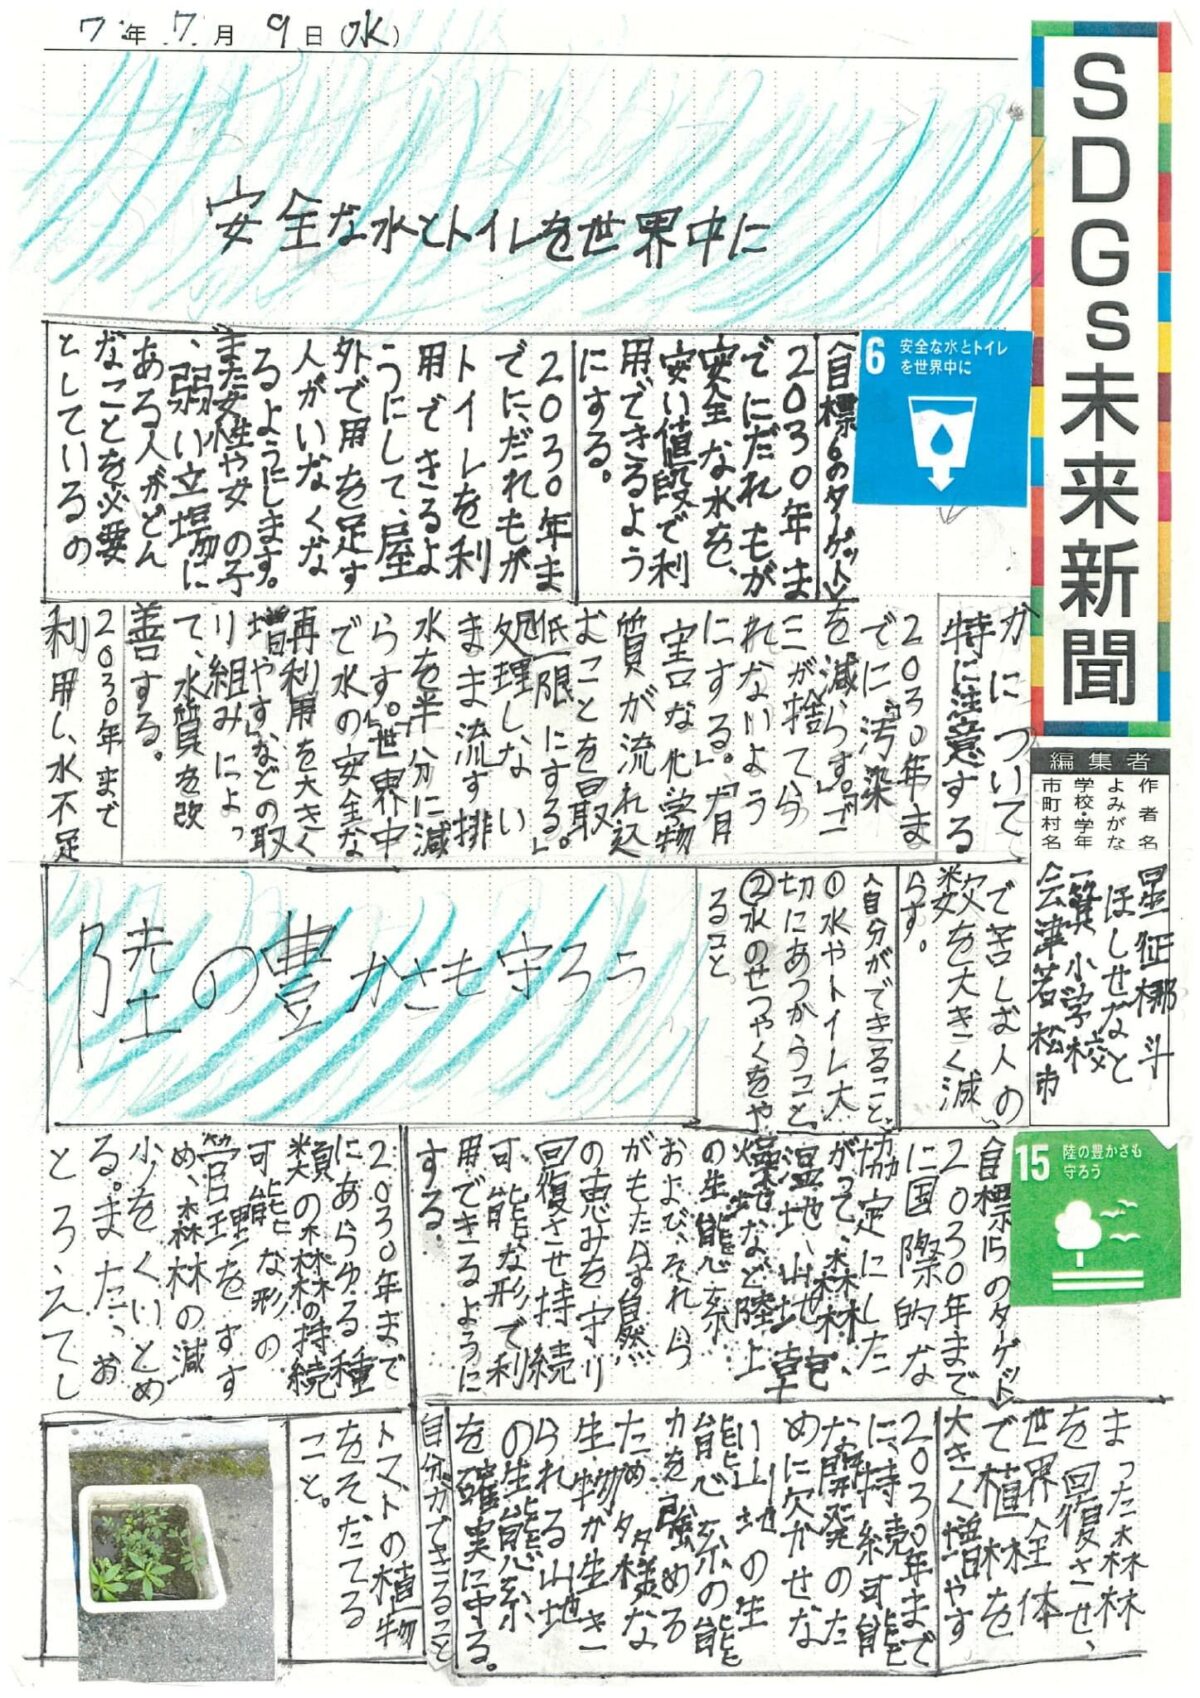 7年7月9日(水)
SDGs未来新聞
編集者
作者名
よみがな
学校・学年
市町村名
星征梛斗
ほしせなと
一箕小学校
会津若松市
安全な水とトイレを世界中に
6 安全な水とトイレ
を世界中に
〈目標6のターゲット〉
2030年ま
でにだれもが
安全な水を、
安い値段で利
用できるよう
にする。
2030年ま
でに、だれもが
トイレを利
用できるよ
うにして、屋
外で用を足す
人がいなくな
るようにします。
また女性や女の子
、弱い立場に
ある人がどん
なことを必要
としているの
かについて
特に注意する
2030年ま
でに、「汚染
を減らす。」「ゴ
ミが捨てら
れないよう
にする。」「有
害な化学物
質が流れ込
むことを最
低限にする」
処理しない
まま流す排
水を半分に減
らす。「世界中
で水の安全な
再利用を大きく
増やす」などの取
り組みによっ
て、水質を改
善する。
2030年まで
利用し、水不足
で苦しむ人の
数を大きく減
らす。
〈自分ができること〉
①水やトイレ大
切にあつかうこと
②水のせつやくをや
ること
陸の豊かさも守ろう
15 陸の豊かさも
守ろう
〈目標15のターゲット〉
2030年まで
に国際的な
協定にした
がって、森林、
湿地、山地
など陸上
の生態系
および、それら
がもたらす自然
の恵みを守り
回復させ持続
可能な形で利
用できるように
する。
2030年まで
にあらゆる種
類の森林の持続
可能な形の
管理をすす
め、森林の減
少をくいとめ
る。また、お
とろえてし
まった森林
を回復させ、
世界全体
で植林を
大きく増やす
2030年まで
に、持続可能
な開発のた
めに欠かせな
い山地の生
態系の能
力を強める
ため多様な
生物が生き
られる山地
の生態系
を確実に守る。
自分ができること
トマトの植物
をそだてる
こと。